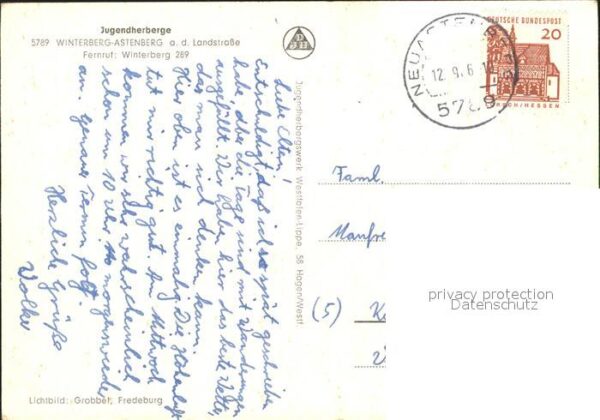 Jugendherberge
5789 WINTERBERG-ASTENBERG a. d. Landstraße
Fernruf: Winterberg 289
Liebe Eltern!
Entschuldigt, daß ich so spät geschrieben
habe, aber die Tage sind mit Wanderungen
ausgefüllt. Wir haben hier das beste Wetter,
das man sich denken kann.
Hier oben ist es einmalig. Die Höhenluft
tut mir richtig gut. Am Mittwoch
kommen wir sehr wahrscheinlich
schon um 10 Uhr morgens wieder
an. Genauer Termin folgt.
Herzliche Grüße
Volker
Lichtbild: Grobbel, Fredeburg
Jugendherbergswerk Westfalen-Lippe, 58 Hagen/Westf
DEUTSCHE BUNDESPOST
20
LORSCH/HESSEN
12. 9. 6
Faml.
Manfre
(5) K
privacy protection
Datenschutz